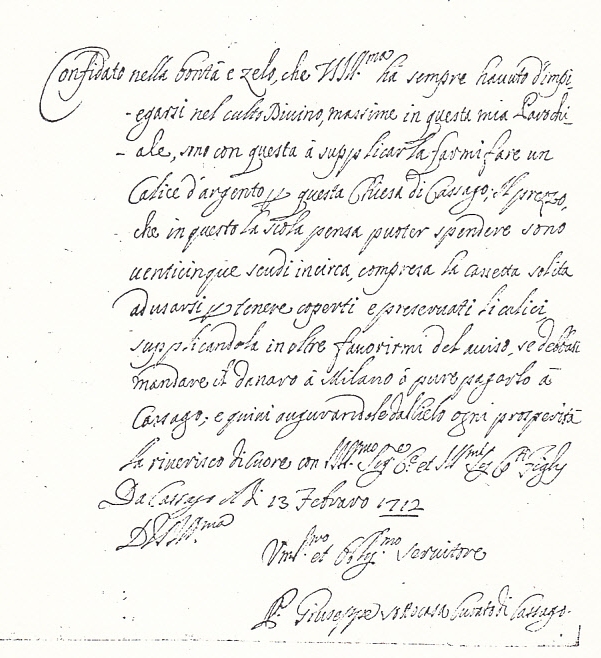 Confidato nella bontà e zelo, che V.S. Ill.ma ha sempre havuto d'impi-
-egarsi nel culto Divino, massime in questa mia Parochi-
-ale, sono con questa à supplicarla farmi fare un
Calice d'argento p questa Chiesa di Cassago; Il prezzo,
che in questo la scola pensa puoter spendere sono
venticinque scudi incirca, compresa la cassetta solita
ad usarsi p tenere coperti e preservati li calici
supplicandola in oltre favorirmi del aviso, se debbasi
mandare il danaro à Milano ò pure pagarlo à
Cassago; e quivi augurandole dal Cielo ogni prosperità
la riverisco di Cuore con Ill.mo Sig.e et Ill.mi Figly
Da Cassago il dì 13 Febraro 1712
D V.S. Ill.ma
Um.mo et Obl.mo Servitore
P. Giuseppe Sottocasa Curato di Cassago.